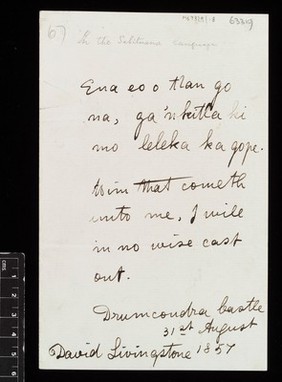 67
63319
In the Setchuana language
Ena eo o tlan go
na, ga nkitla ki
mo leleka ka gope.
Him that cometh
unto me, I will
in no wise cast
out.
Drumcondra Castle
31st August
David Livingstone 1857